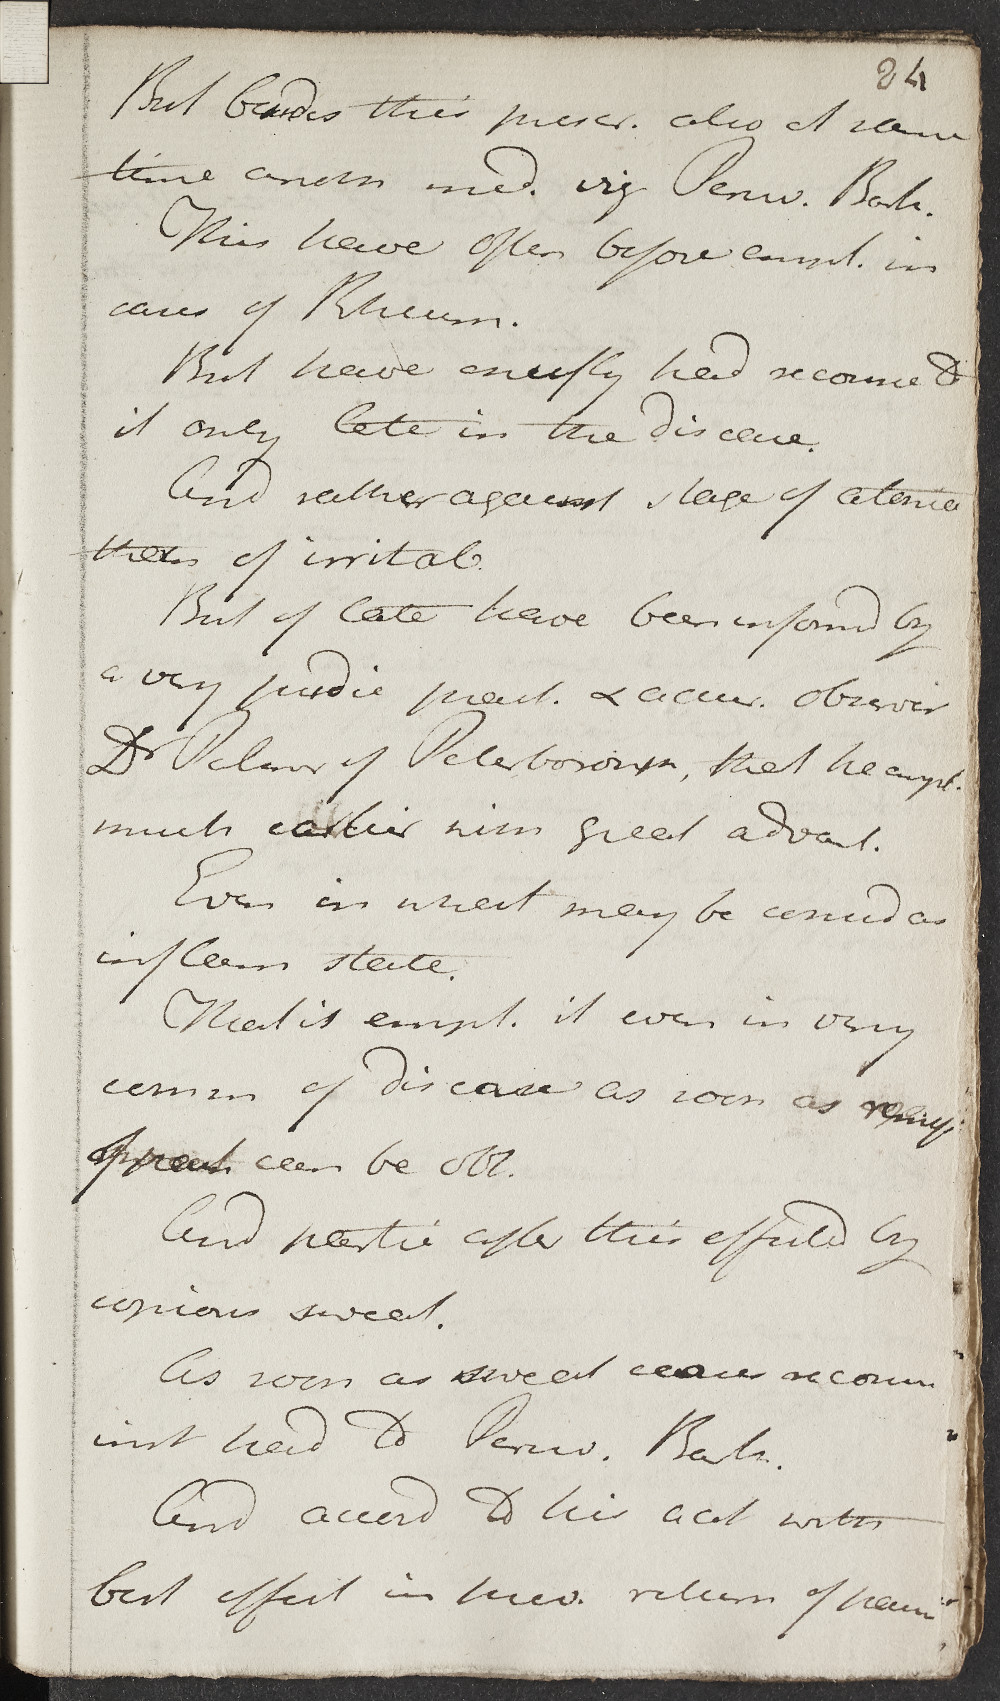 24
But besides this prescr. also at same
time anothr med. viz Peruv. Bark.
This have often before empl. in
cases of Rheum.
But have chiefly had recourse to
it only late in the disease.
And rather against stage of atonia
than of irritab.
But of late have been informd by
a very judic pract. & accur. observer
Dr Palmer of Peterborough, that he empl.
much earlier with great advant.
Even in what may be consid as
inflam state.
That is empl. it even in very
comm of disease as soon as
can be obt.
And partic after this effected by
copious sweat.
As soon as sweat ceases recours
inst had to Peruv. Bark.
And accord to his acct with
best effect in prev. return of pain